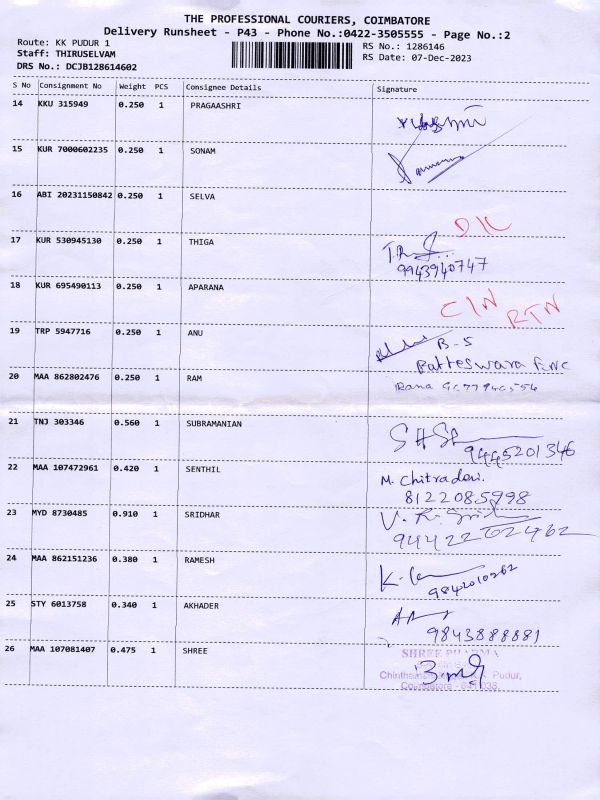 THE PROFESSIONAL COURIERS, COIMBATORE
Delivery Runsheet - P43 - Phone No.:0422-3505555 - Page No.:2
Route: KK PUDUR 1
RS No.: 1286146
Staff: THIRUSELVAM
RS Date: 07-Dec-2023
DRS No.: DCJB128614602
S No Consignment No Weight PCS Consignee Details Signature
14 KKU 315949 0.250 1 PRAGAASHRI
15 KUR 7000602235 0.250 1 SONAM
16 ABI 20231150842 0.250 1 SELVA
D/L
17 KUR 530945130 0.250 1 THIGA
9943940747
18 KUR 695490113 0.250 1 APARANA
C/N RTN
19 TRP 5947716 0.250 1 ANU
B-5
20 MAA 862802476 0.250 1 RAM
Rana
21 TNJ 303346 0.560 1 SUBRAMANIAN
9445201346
22 MAA 107472961 0.420 1 SENTHIL
M. Chitradevi.
8122085998
23 MYD 8730485 0.910 1 SRIDHAR
24 MAA 862151236 0.380 1 RAMESH
9842010262
25 STY 6013758 0.340 1 AKHADER
9843888881
26 MAA 107081407 0.475 1 SHREE
SHREE PHARMA
Pudur,